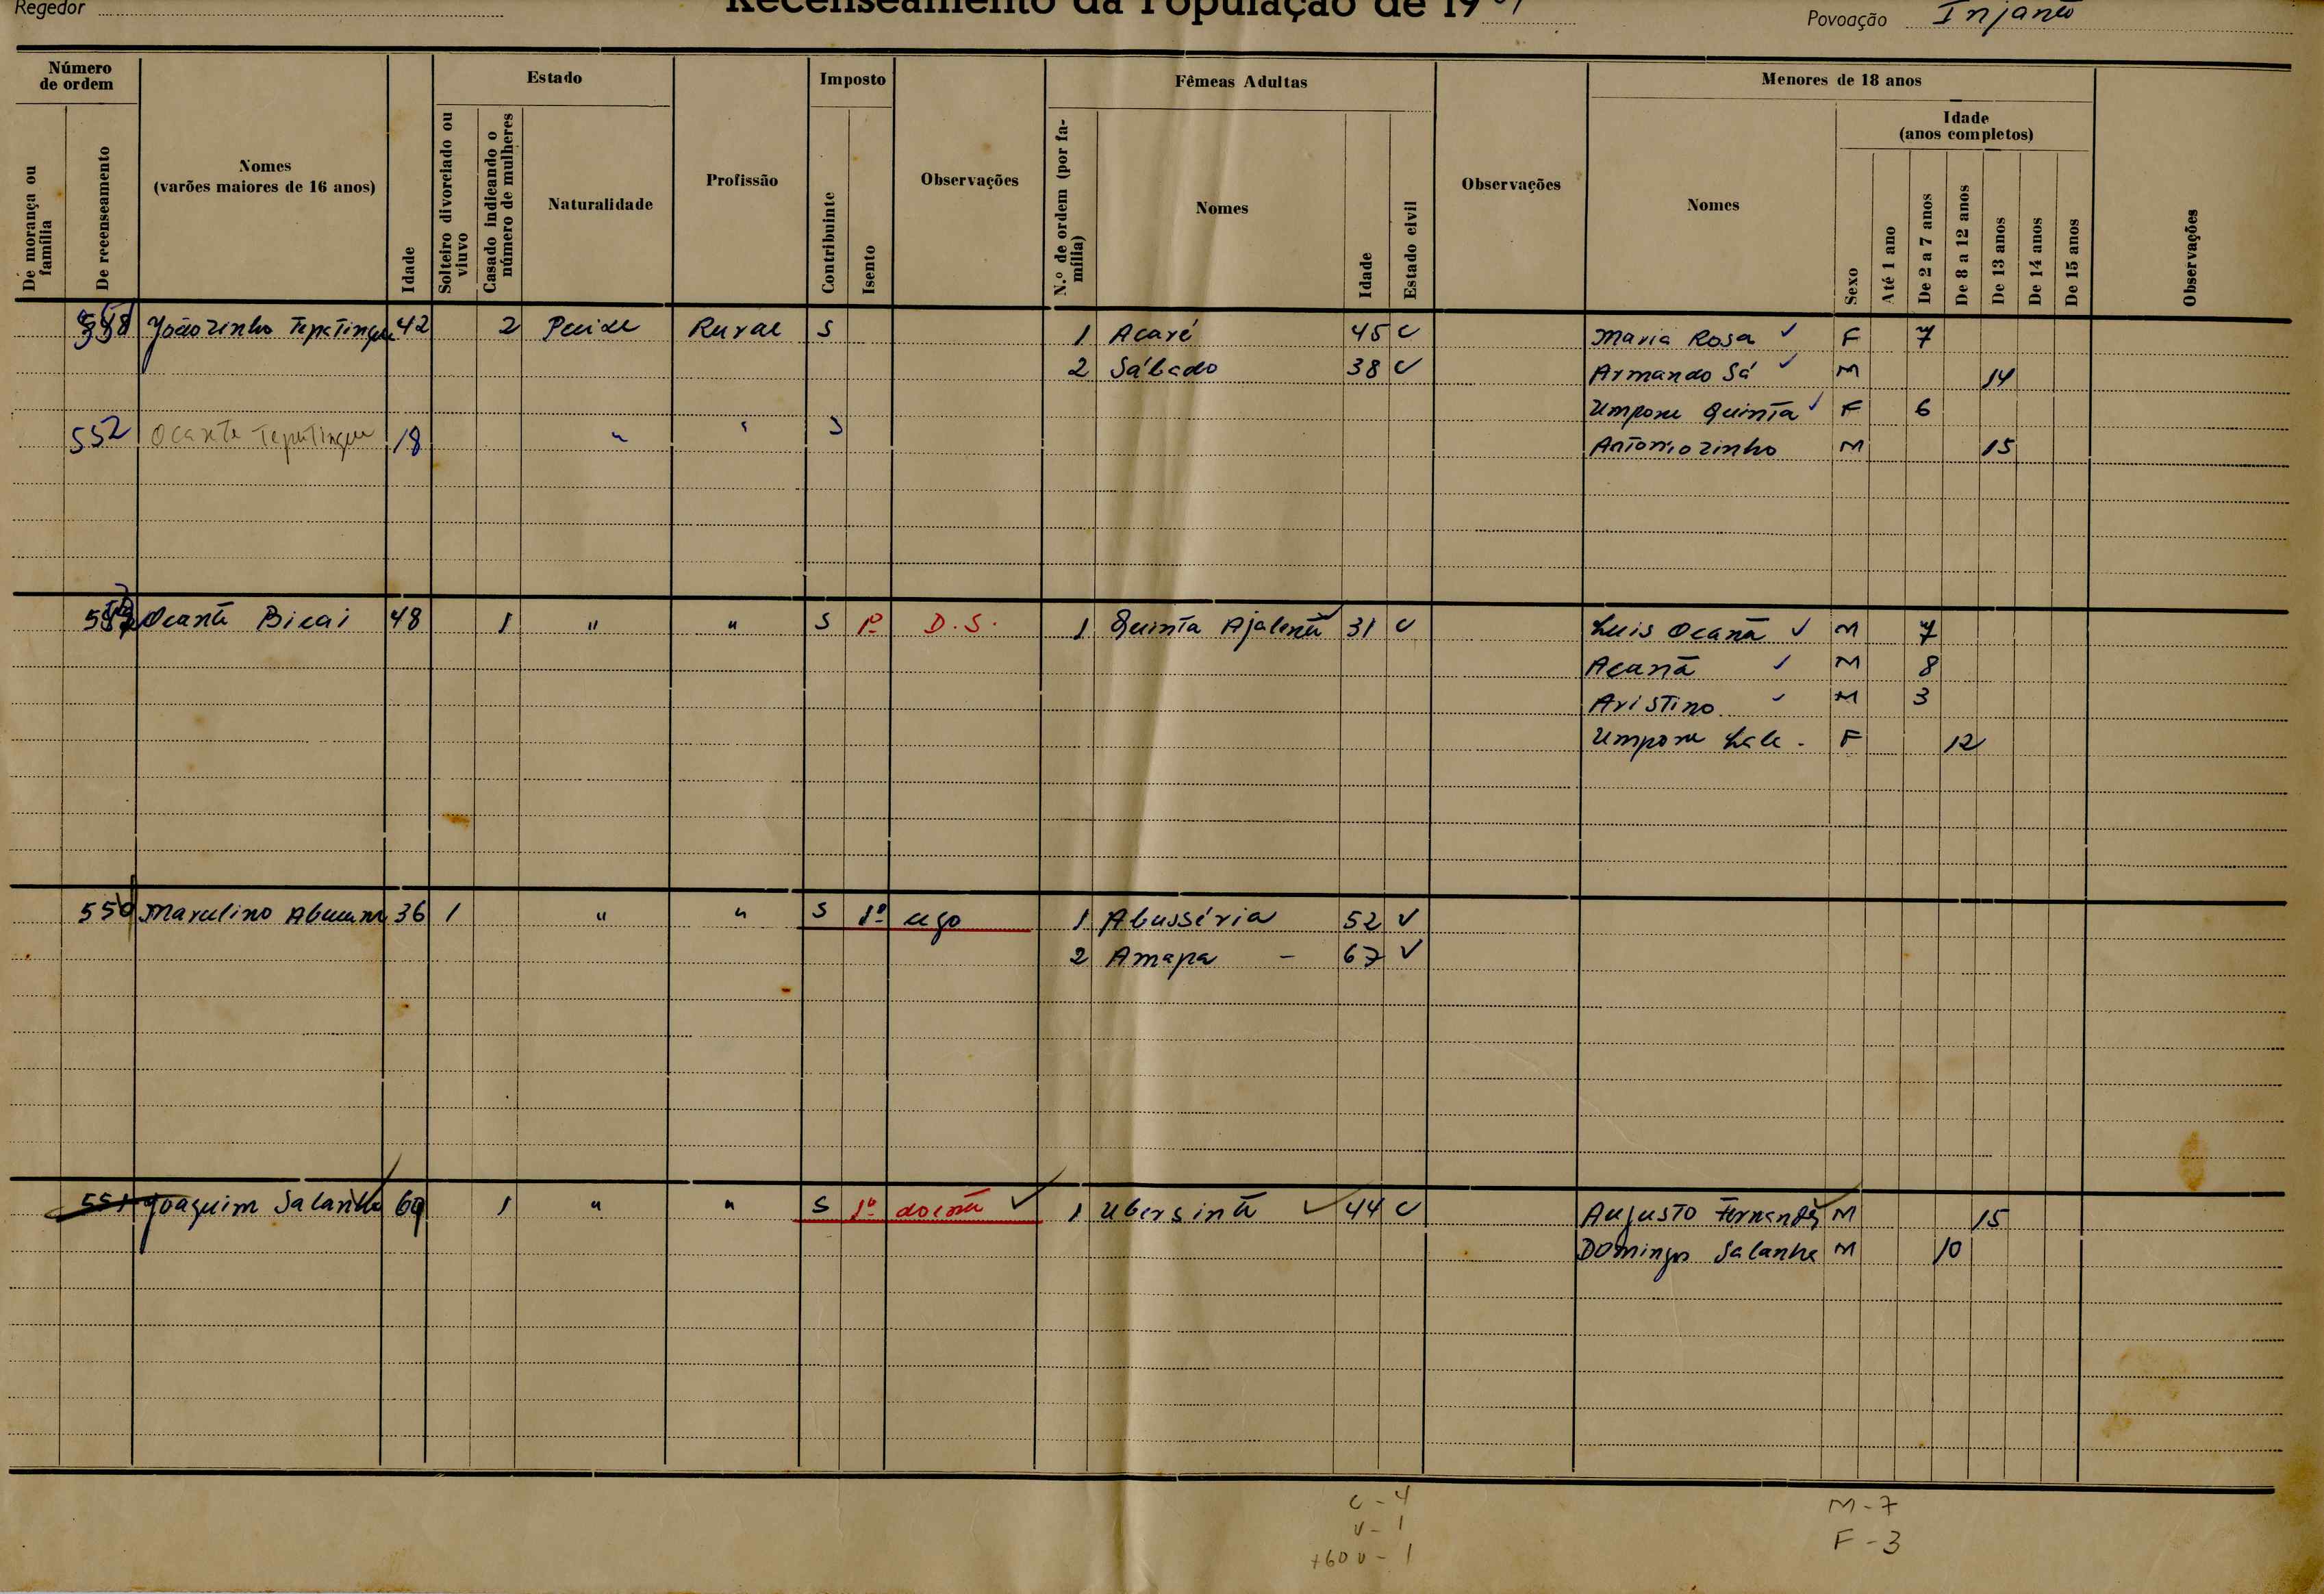 Regedor
Recenseamento da População de 19
Povoação Injanté
Número de ordem
De morança ou família
De recenseamento
Nomes (varões maiores de 16 anos)
Idade
Estado
Solteiro divorciado ou viuvo
Casado indicando o número de mulheres
Naturalidade
Profissão
Imposto
Contribuinte
Isento
Observações
Fêmeas Adultas
N.º de ordem (por família)
Nomes
Idade
Estado civil
Observações
Menores de 18 anos
Nomes
Sexo
Idade (anos completos)
Até 1 ano
De 2 a 7 anos
De 8 a 12 anos
De 13 anos
De 14 anos
De 15 anos
Observações
Joãozinho 42 2 Rural S 1 Acaré 45 C Maria Rosa ✓ F 7
2 Sábado 38 C Armando Sá ✓ M 14
Umpone Quinta ✓ F 6
552 18 " " S Antoniozinho M 15
Bicai 48 1 " " S 1º D.S. 1 Quinta 31 C Luis ✓ M 7
✓ M 8
Aristino ✓ M 3
Umpone F 12
Marcelino 36 1 " " S 1º cego 1 Abusséria 52 V
2 Amapa – 67 V
551 Joaquim 69 1 " " S 1º doente ✓ 1 Ubersinte ✓ 44 C Augusto Fernandes M 15
Domingos Salanha M 10
C – 4
V – 1
+60 V – 1
M – 7
F – 3